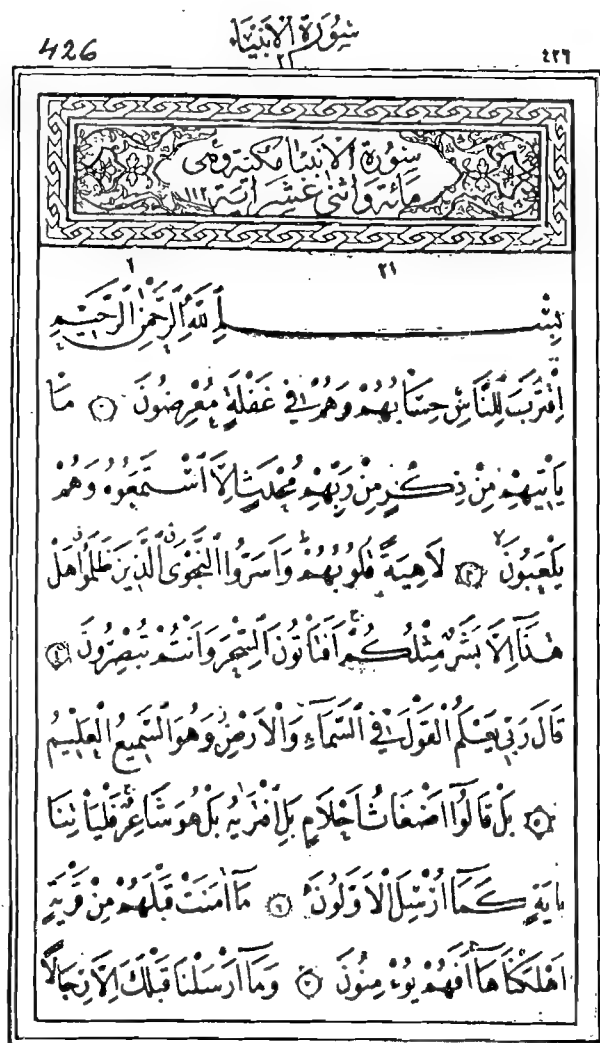 426
سُورَةُ الْاَنْبِيَاءِ
٢١
٤٢٦
سُورَةُ الْاَنْبِيَاءِ مَكِّيَّةٌ وَهِيَ
مِائَةٌ وَاثْنَتَىْ عَشَرَ اٰيَةً ١١٢
٢١
بِسْمِ اللّٰهِ الرَّحْمٰنِ الرَّحِيمِ
اِقْتَرَبَ لِلنَّاسِ حِسَابُهُمْ وَهُمْ فِي غَفْلَةٍ مُعْرِضُونَ ۝ مَا
يَأْتِيهِمْ مِنْ ذِكْرٍ مِنْ رَبِّهِمْ مُحْدَثٍ اِلَّا اسْتَمَعُوهُ وَهُمْ
يَلْعَبُونَ ۝ لَاهِيَةً قُلُوبُهُمْ وَاَسَرُّوا النَّجْوَى الَّذِينَ ظَلَمُوا هَلْ
هٰذَآ اِلَّا بَشَرٌ مِثْلُكُمْ اَفَتَأْتُونَ السِّحْرَ وَاَنْتُمْ تُبْصِرُونَ ۝
قَالَ رَبِّي يَعْلَمُ الْقَوْلَ فِي السَّمَآءِ وَالْاَرْضِ وَهُوَ السَّمِيعُ الْعَلِيمُ
۝ بَلْ قَالُوٓا اَضْغَاثُ اَحْلَامٍ بَلِ افْتَرٰيهُ بَلْ هُوَ شَاعِرٌ فَلْيَأْتِنَا
بِاٰيَةٍ كَمَآ اُرْسِلَ الْاَوَّلُونَ ۝ مَآ اٰمَنَتْ قَبْلَهُمْ مِنْ قَرْيَةٍ
اَهْلَكْنَاهَا اَفَهُمْ يُؤْمِنُونَ ۝ وَمَآ اَرْسَلْنَا قَبْلَكَ اِلَّا رِجَالًا